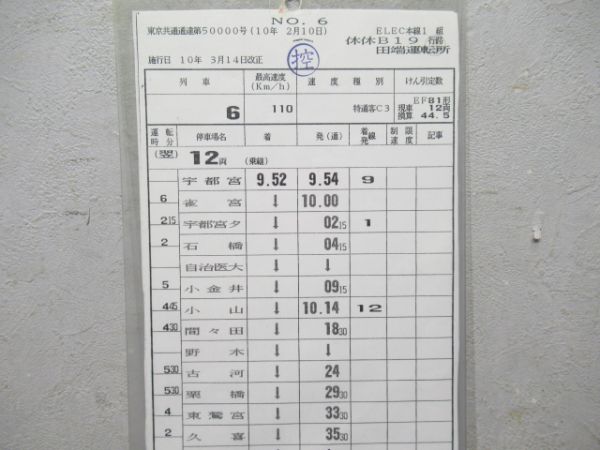 NO. 6
東京共通通達第50000号(10年 2月10日)
ELEC本線1 組
休休B19行路
田端運転所
控
施行日 10年 3月14日改正
列 車 最高速度(Km/h) 速 度 種 別 けん引定数
6 110 特通客C3 EF81形
現車 12両
換算 44.5
運転時分 停車場名 着 発(通) 着発線 制限速度 記事
(翌) 12両 (乗継)
宇都宮 9.52 9.54 9
6 雀宮 ↓ 10.00
2 15 宇都宮タ ↓ 02 15 1
2 石橋 ↓ 04 15
自治医大 ↓ ↓
5 小金井 ↓ 09 15
4 45 小山 ↓ 10.14 12
4 30 間々田 ↓ 18 30
野木 ↓ ↓
5 30 古河 ↓ 24
5 30 栗橋 ↓ 29 30
4 東鷲宮 ↓ 33 30
2 久喜 ↓ 35 30